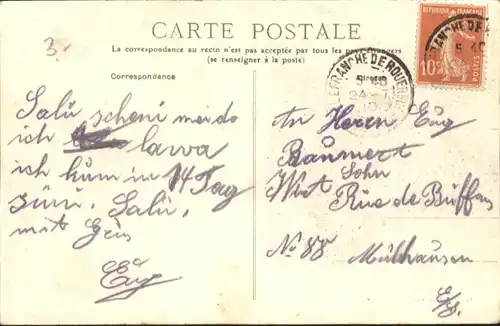 3.
CARTE POSTALE
La correspondance au recto n'est pas acceptée par tous les pays étrangers
(se renseigner à la poste)
Correspondance
Adresse
RÉPUBLIQUE FRANÇAISE
10c
FRANCHE DE ROUERGUE
Salü scheni meido
ich lawa
ich küm in 14 Tag
zürü. Salü,
mit Grüs
Eug
An Herrn Eug
Baumert
Wirt Sohn
Rue de Buffon
No 88
Mülhausen
E/s.